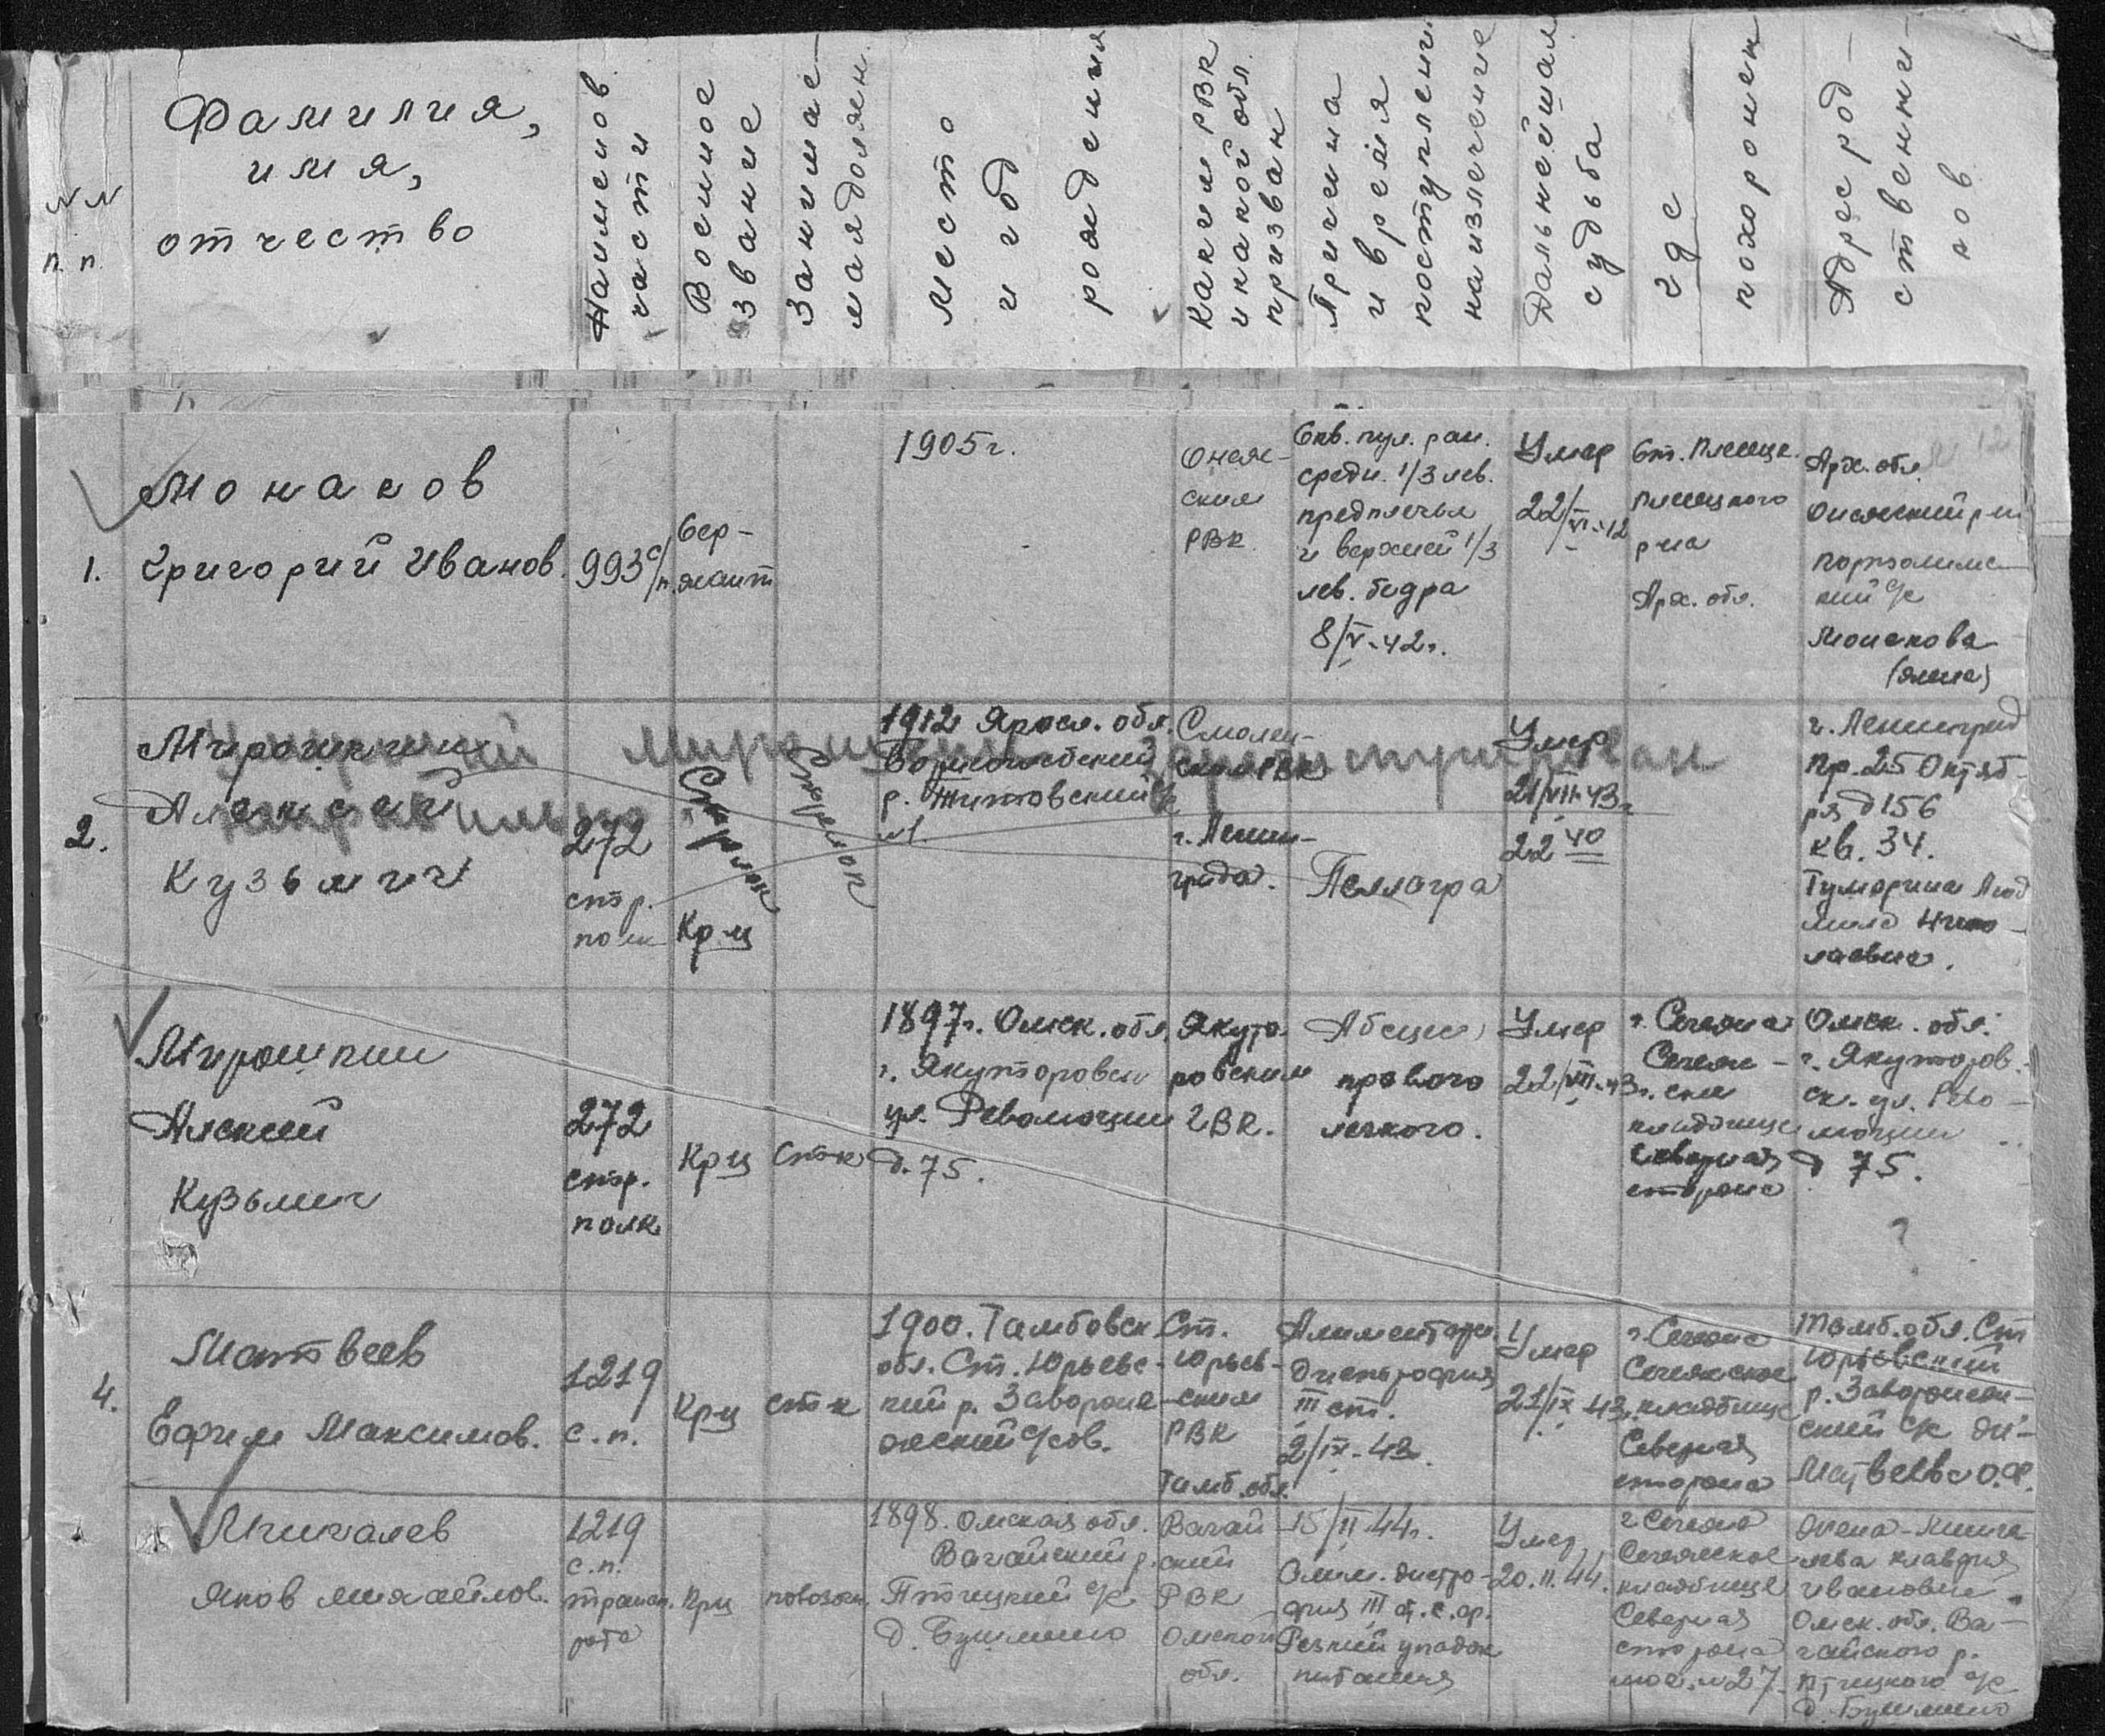 NN
п.п.
Фамилия,
имя,
отчество
Наименов.
части
Военное
звание
Занимае-
мая должн.
Место
и год
рождения
Каким РВК
и какой обл.
призван
Причина
и время
поступлени
на излечение
Дальнейшая
судьба
где
похоронен
Адрес род-
ственни-
ков
1.
Монаков
Григорий Иванов.
993 с/п.
Сер-
жант
1905г.
Онеж-
ским
РВК
Скв. пул. ран.
средн. 1/3 лев.
предплечья
и верхней 1/3
лев. бедра
8/V-42г.
Умер
22/VI-42
Ст. Плесецк.
Плесецкого
р-на
Арх. обл.
Арх. обл.
Онежский р-н
кий с/с
Монакова
(жена)
2.
Мирошкин
Алексей
Кузьмич
272
стр.
полк
Стрелок
Кр-ц
Стрелок
1912 Яросл. обл.
р. Титовский с/с
Смолен-
ским РВК
г. Ленин-
града.
Пеллагра
Умер
21/VII-43г.
22 40
г. Ленинград
Пр. 25 Октяб-
ря д 156
кв. 34.
Люд
мила Нико-
лаевна.
Мирошкин зарегистрирован
неправильно
Мирошкин
Алексей
Кузьмич
272
стр.
полк
Кр-ц
Стр-к
1897г. Омск. обл.
г. Якуторовск
ул. Революции
д. 75.
Якуто-
ровским
ГВК.
Абсцесс
правого
легкого.
Умер
22/VII-43г.
г. Сегежа
Сегеж-
ское
кладбище
Северная
сторона
Омск. обл.
г. Якуторов-
ск. ул. Рево-
люции
д 75.
?
4.
Матвеев
Ефим Максимов.
1219
с.п.
Кр-ц
стр-к
1900. Тамбовск.
обл. Ст. Юрьевс-
кий р. Завороне-
жский с/сов.
Ст.
Юрьев-
ским
РВК
Тамб. обл.
Алиментарн.
дистрофия
III ст.
2/IX-43г.
Умер
21/IX 43г.
г. Сегежа
Сегежское
кладбище
Северная
сторона
Тамб. обл. Ст
Юрьевский
р. Заворонеж-
ский с/с
Матвеева О.Ф.
Мингалев
Яков михайлов.
1219
с.п.
трансп.
рота
Кр-ц
повозочн.
1898. Омская обл.
Вагайский р.
Птицкий с/с
Д. Бушмино
Вагай
ский
РВК
Омской
обл.
15/II 44г.
Алим. дистро-
фия III ст. с. ф.
Резкий упадок
питания
Умер
20.II.44.
г Сегежа
Сегежское
кладбище
Северная
сторона
мог. N 27.
Жена-Минга-
лева клавдия
ивановна.
Омск. обл. Ва-
гайского р.
Птицкого с/с
д. Бушмино